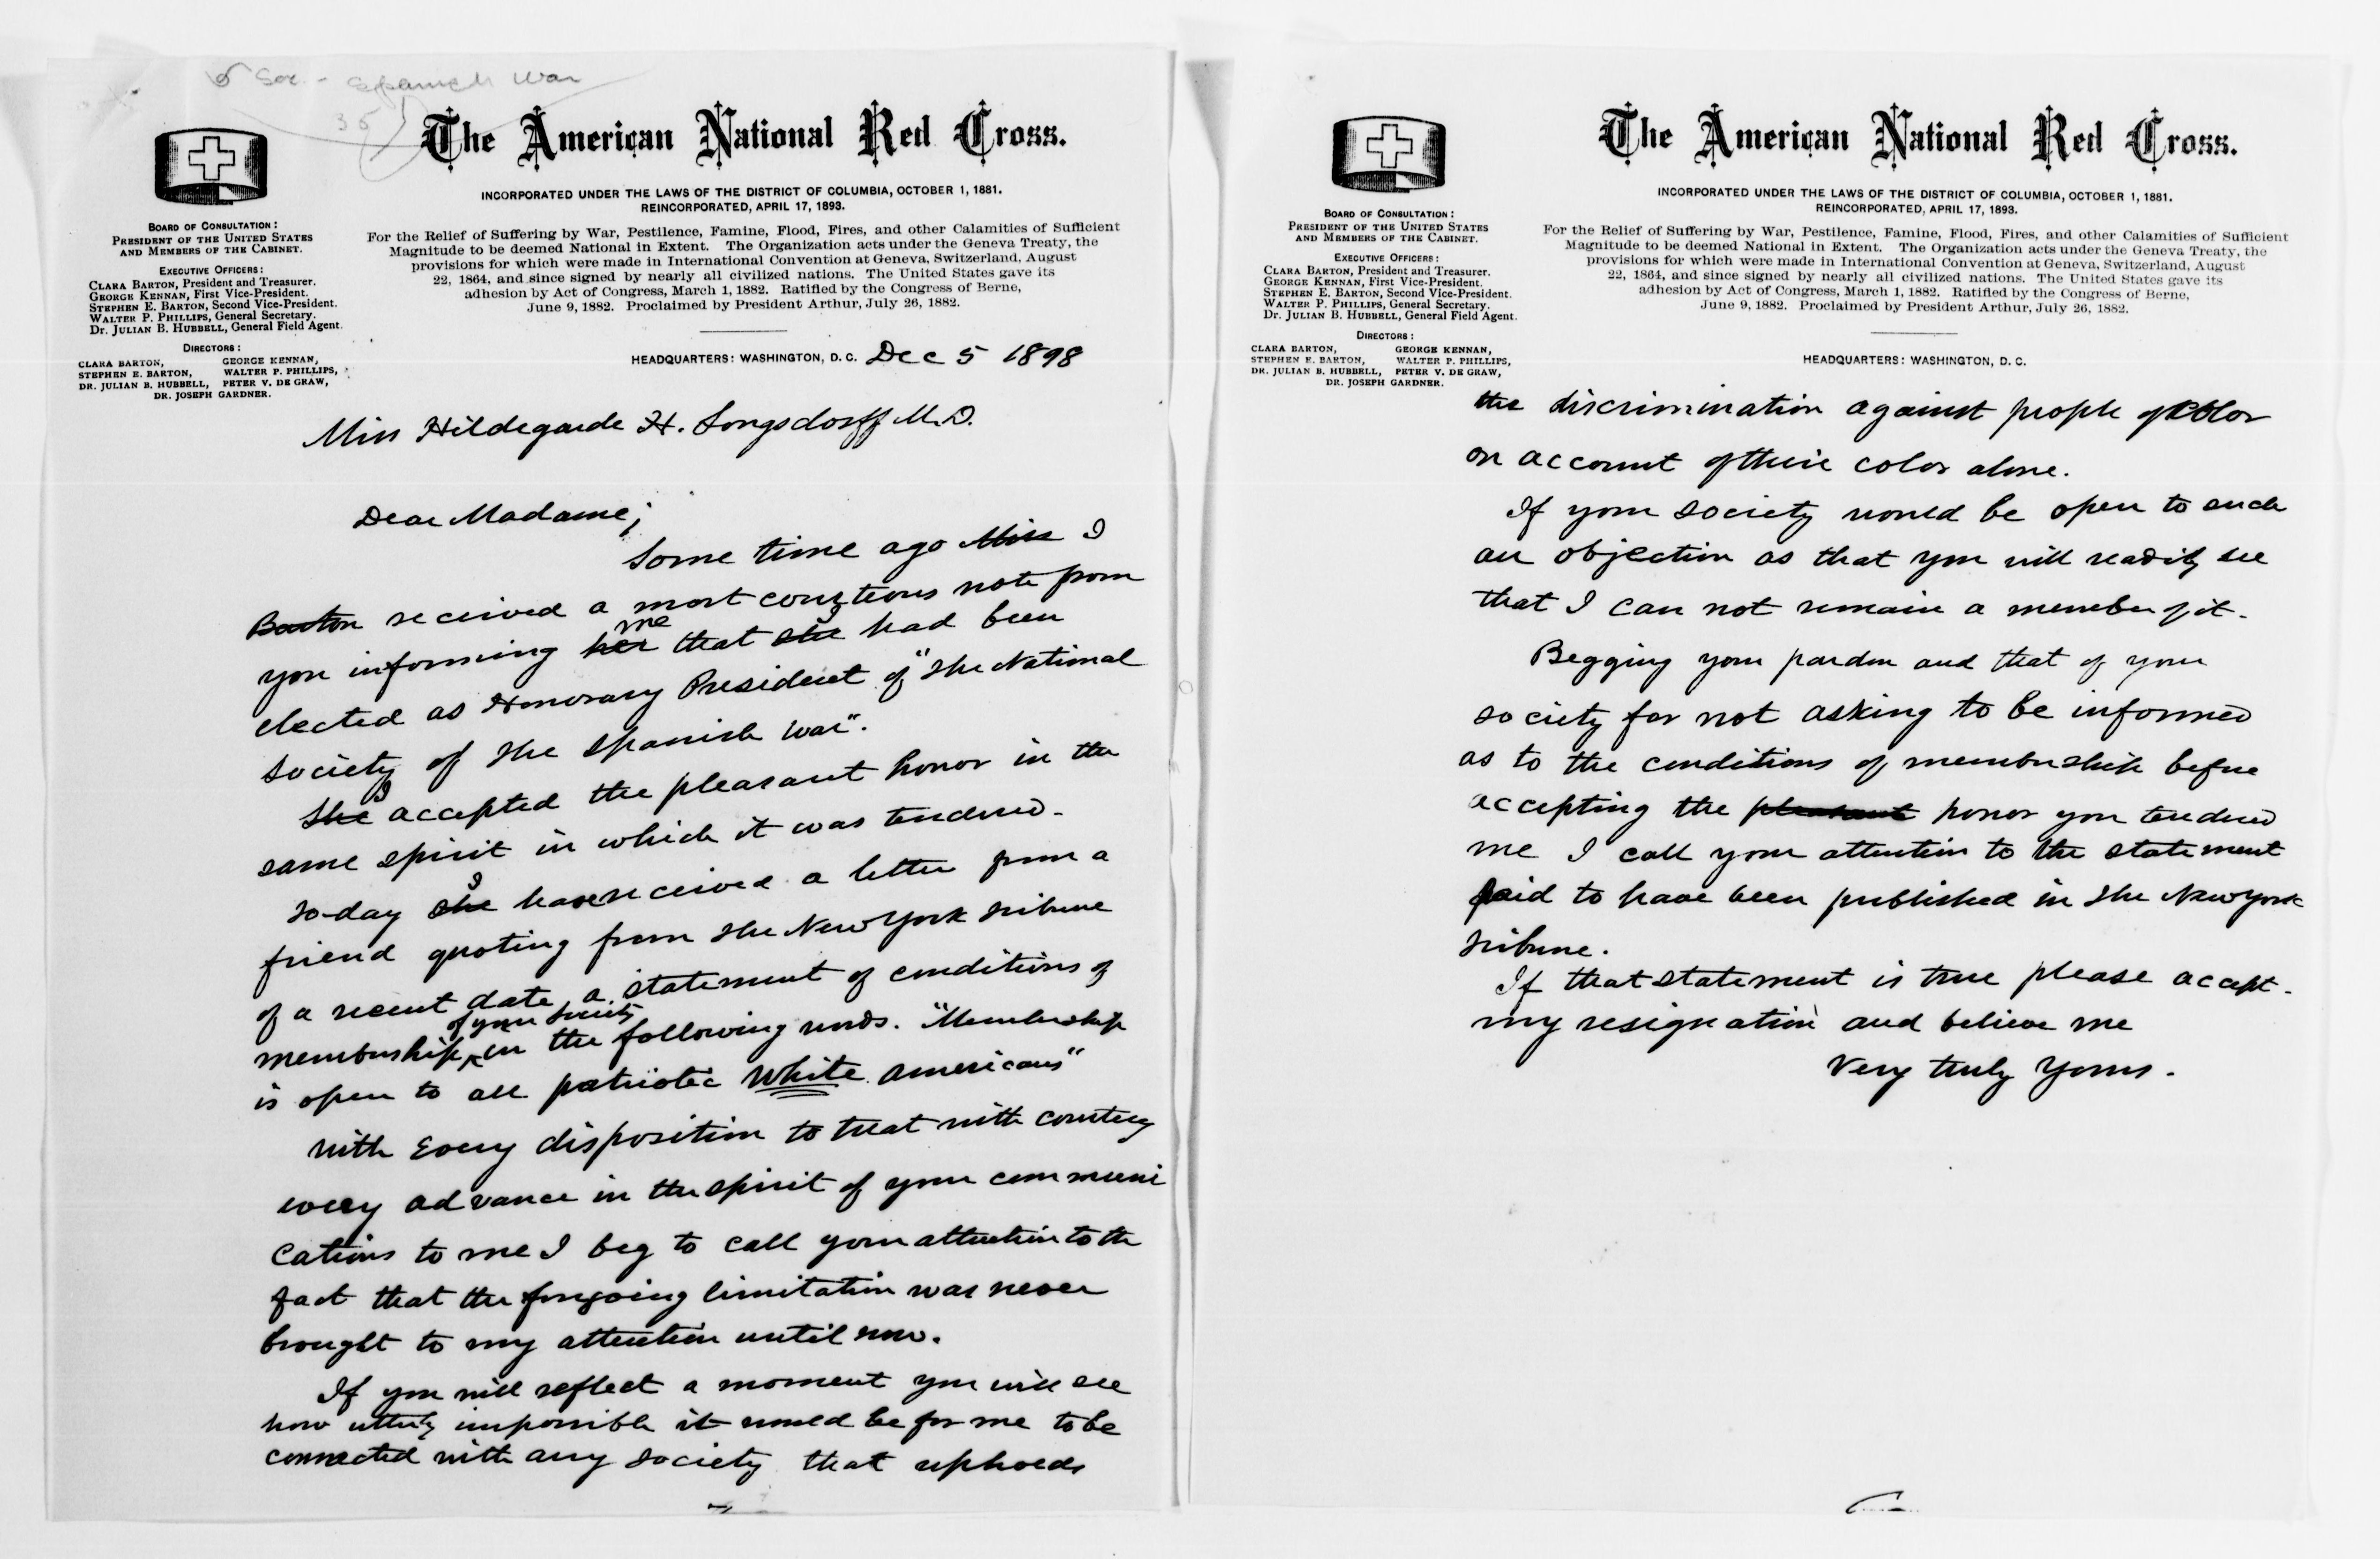 Soc. - Spanish War
35
The American National Red Cross.
INCORPORATED UNDER THE LAWS OF THE DISTRICT OF COLUMBIA, OCTOBER 1, 1881.
REINCORPORATED, APRIL 17, 1893.
BOARD OF CONSULTATION:
PRESIDENT OF THE UNITED STATES
AND MEMBERS OF THE CABINET.
EXECUTIVE OFFICERS:
CLARA BARTON, President and Treasurer.
GEORGE KENNAN, First Vice-President.
STEPHEN E. BARTON, Second Vice-President.
WALTER P. PHILLIPS, General Secretary.
Dr. JULIAN B. HUBBELL, General Field Agent.
DIRECTORS:
CLARA BARTON, GEORGE KENNAN,
STEPHEN E. BARTON, WALTER P. PHILLIPS,
DR. JULIAN B. HUBBELL, PETER V. DE GRAW,
DR. JOSEPH GARDNER.
For the Relief of Suffering by War, Pestilence, Famine, Flood, Fires, and other Calamities of Sufficient
Magnitude to be deemed National in Extent. The Organization acts under the Geneva Treaty, the
provisions for which were made in International Convention at Geneva, Switzerland, August
22, 1864, and since signed by nearly all civilized nations. The United States gave its
adhesion by Act of Congress, March 1, 1882. Ratified by the Congress of Berne,
June 9, 1882. Proclaimed by President Arthur, July 26, 1882.
HEADQUARTERS: WASHINGTON, D. C. Dec 5 1898
Miss Hildegarde H. Longsdorff M.D.
Dear Madame;
Some time ago Miss I
Barton received a most courteous note from
you informing her me that she had been
elected as Honorary President of "The National
Society of The Spanish War".
She I accepted the pleasant honor in the
same spirit in which it was tendered.
To-day she I have received a letter from a
friend quoting from The New York Tribune
of a recent date, a statement of conditions of
membership, of your Society in the following words. "Membership
is open to all patriotic White Americans"
With Every disposition to treat with courtesy
every advance in the spirit of your communi
cations to me I beg to call your attention to the
fact that the foregoing limitation was never
brought to my attention until now.
If you will reflect a moment you will see
how utterly impossible it would be for me to be
connected with any society that upholds
The American National Red Cross.
INCORPORATED UNDER THE LAWS OF THE DISTRICT OF COLUMBIA, OCTOBER 1, 1881.
REINCORPORATED, APRIL 17, 1893.
BOARD OF CONSULTATION:
PRESIDENT OF THE UNITED STATES
AND MEMBERS OF THE CABINET.
EXECUTIVE OFFICERS:
CLARA BARTON, President and Treasurer.
GEORGE KENNAN, First Vice-President.
STEPHEN E. BARTON, Second Vice-President.
WALTER P. PHILLIPS, General Secretary.
Dr. JULIAN B. HUBBELL, General Field Agent.
DIRECTORS:
CLARA BARTON, GEORGE KENNAN,
STEPHEN E. BARTON, WALTER P. PHILLIPS,
DR. JULIAN B. HUBBELL, PETER V. DE GRAW,
DR. JOSEPH GARDNER.
For the Relief of Suffering by War, Pestilence, Famine, Flood, Fires, and other Calamities of Sufficient
Magnitude to be deemed National in Extent. The Organization acts under the Geneva Treaty, the
provisions for which were made in International Convention at Geneva, Switzerland, August
22, 1864, and since signed by nearly all civilized nations. The United States gave its
adhesion by Act of Congress, March 1, 1882. Ratified by the Congress of Berne,
June 9, 1882. Proclaimed by President Arthur, July 26, 1882.
HEADQUARTERS: WASHINGTON, D. C.
the discrimination against people of color
on account of their color alone.
If your society would be open to such
an objection as that you will readily see
that I can not remain a member of it.
Begging your pardon and that of your
society for not asking to be informed
as to the conditions of membership before
accepting the pleasant honor you tendered
me I call your attention to the statement
said to have been published in The New York
Tribune.
If that statement is true please accept
my resignation and believe me
Very truly yours.